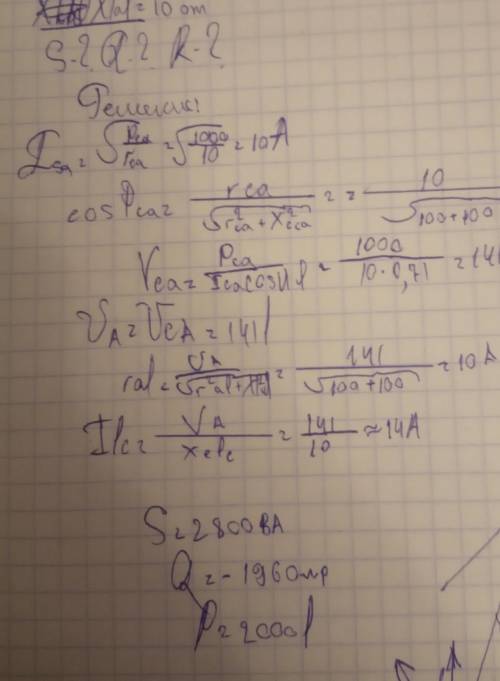 Xlal = 10 om
S-? Q-? R-?
Решение:
Isa = √Pca/rca = √1000/10 = 10A
cosφca = rca/√r²ca + X²cca = = 10/√100+100
Vca = Pca/Icacosφ = 1000/10·0,71 = 141
VA = VcA = 141
ral = VA/√r²al + X²al = 141/√100+100 = 10A
Ilc = VA/xclc = 141/10 ≈ 14A
S = 2800 ВА
Q = -1960
P = 2000